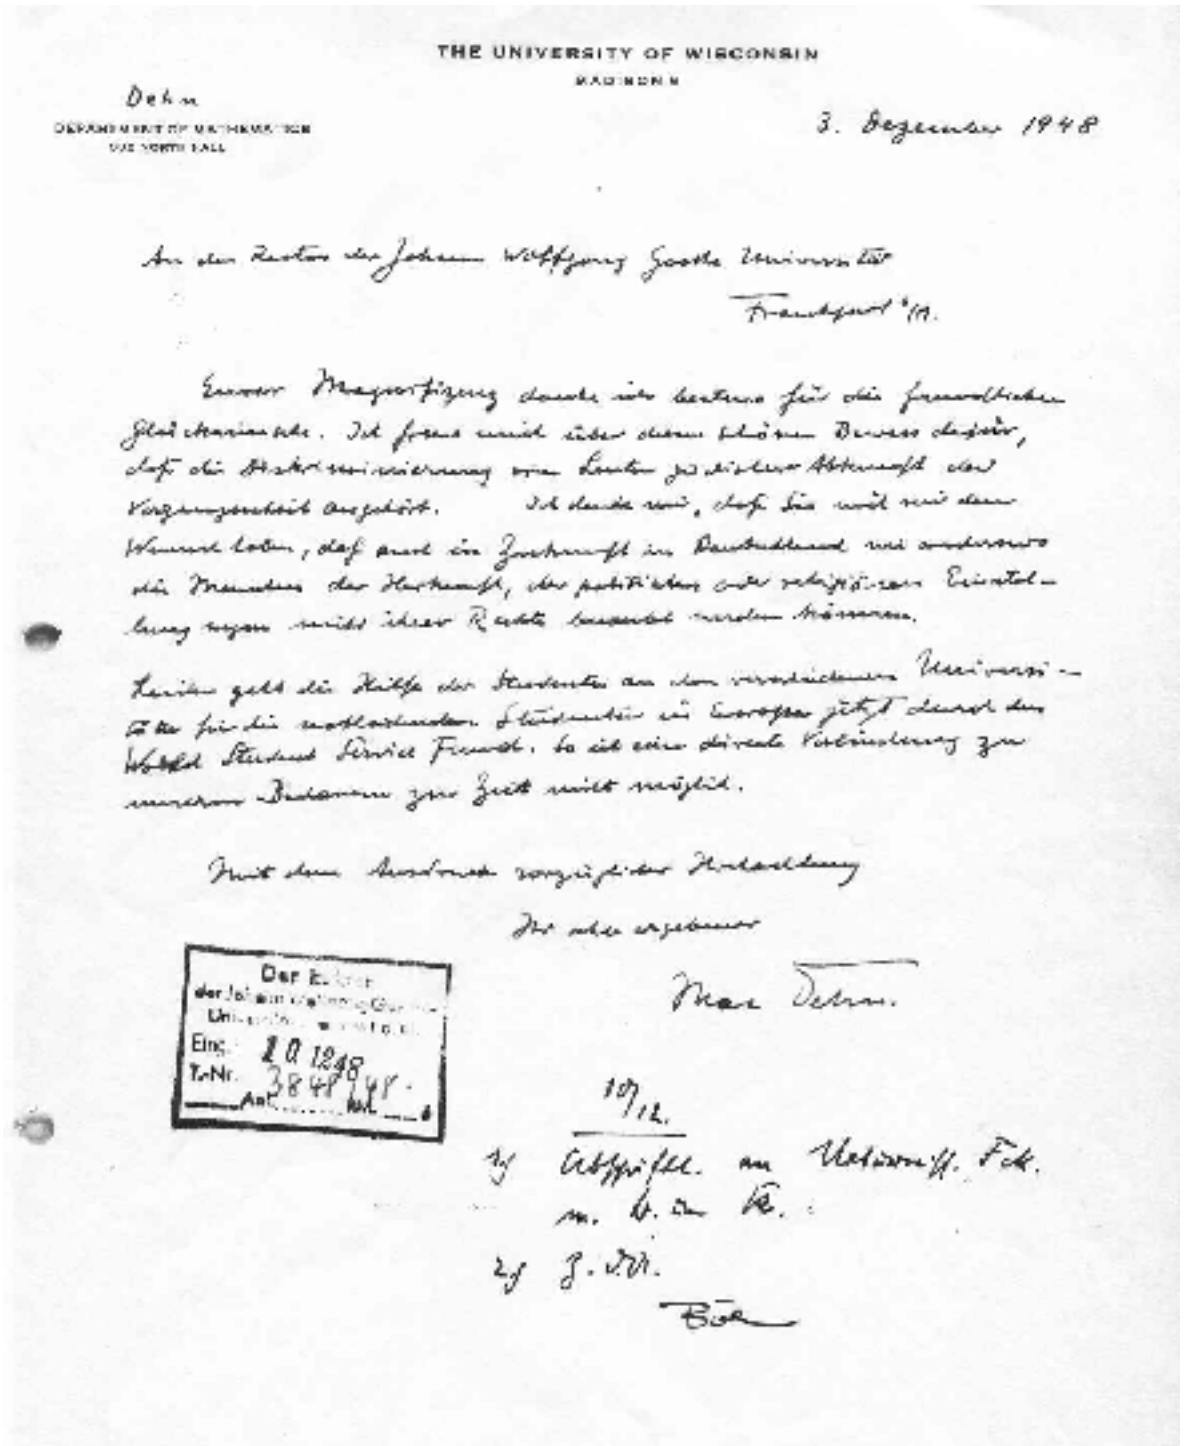 THE UNIVERSITY OF WISCONSIN
MADISON 6
Dehn
DEPARTMENT OF MATHEMATICS
NORTH HALL
3. Dezember 1948
An den Rektor der Johann Wolfgang Goethe Universität
Frankfurt a/M.
Eurer Magnifizenz danke ich bestens für die freundlichen
Glückwünsche. Ich freue mich über diesen schönen Beweis dafür,
daß die Diskriminierung von Leuten jüdischer Abkunft der
Vergangenheit angehört. Ich denke mir, daß Sie mit mir den
Wunsch haben, daß auch in Zukunft in Deutschland wie anderswo
die Menschen der Herkunft, der politischen oder religiösen Einstel-
lung wegen nicht ihrer Rechte beraubt werden können.
Leider geht die Hilfe der Studenten an den verschiedenen Universi-
täten für die notleidenden Studenten in Europa jetzt durch den
World Student Service Fund. So ist eine direkte Verbindung zu
unserem Bedauern zur Zeit nicht möglich.
Mit dem Ausdruck vorzüglicher Hochachtung
Ihr sehr ergebener
Max Dehn.
Der Rektor
der Johann Wolfgang Goethe
Universität
Eing. 10. 12. 48
T.-Nr. 3848/48.
Ant.
10/12.
1) Abschriftl. an Naturwiss. Fak.
m. d. K.
2) Z. d. A.